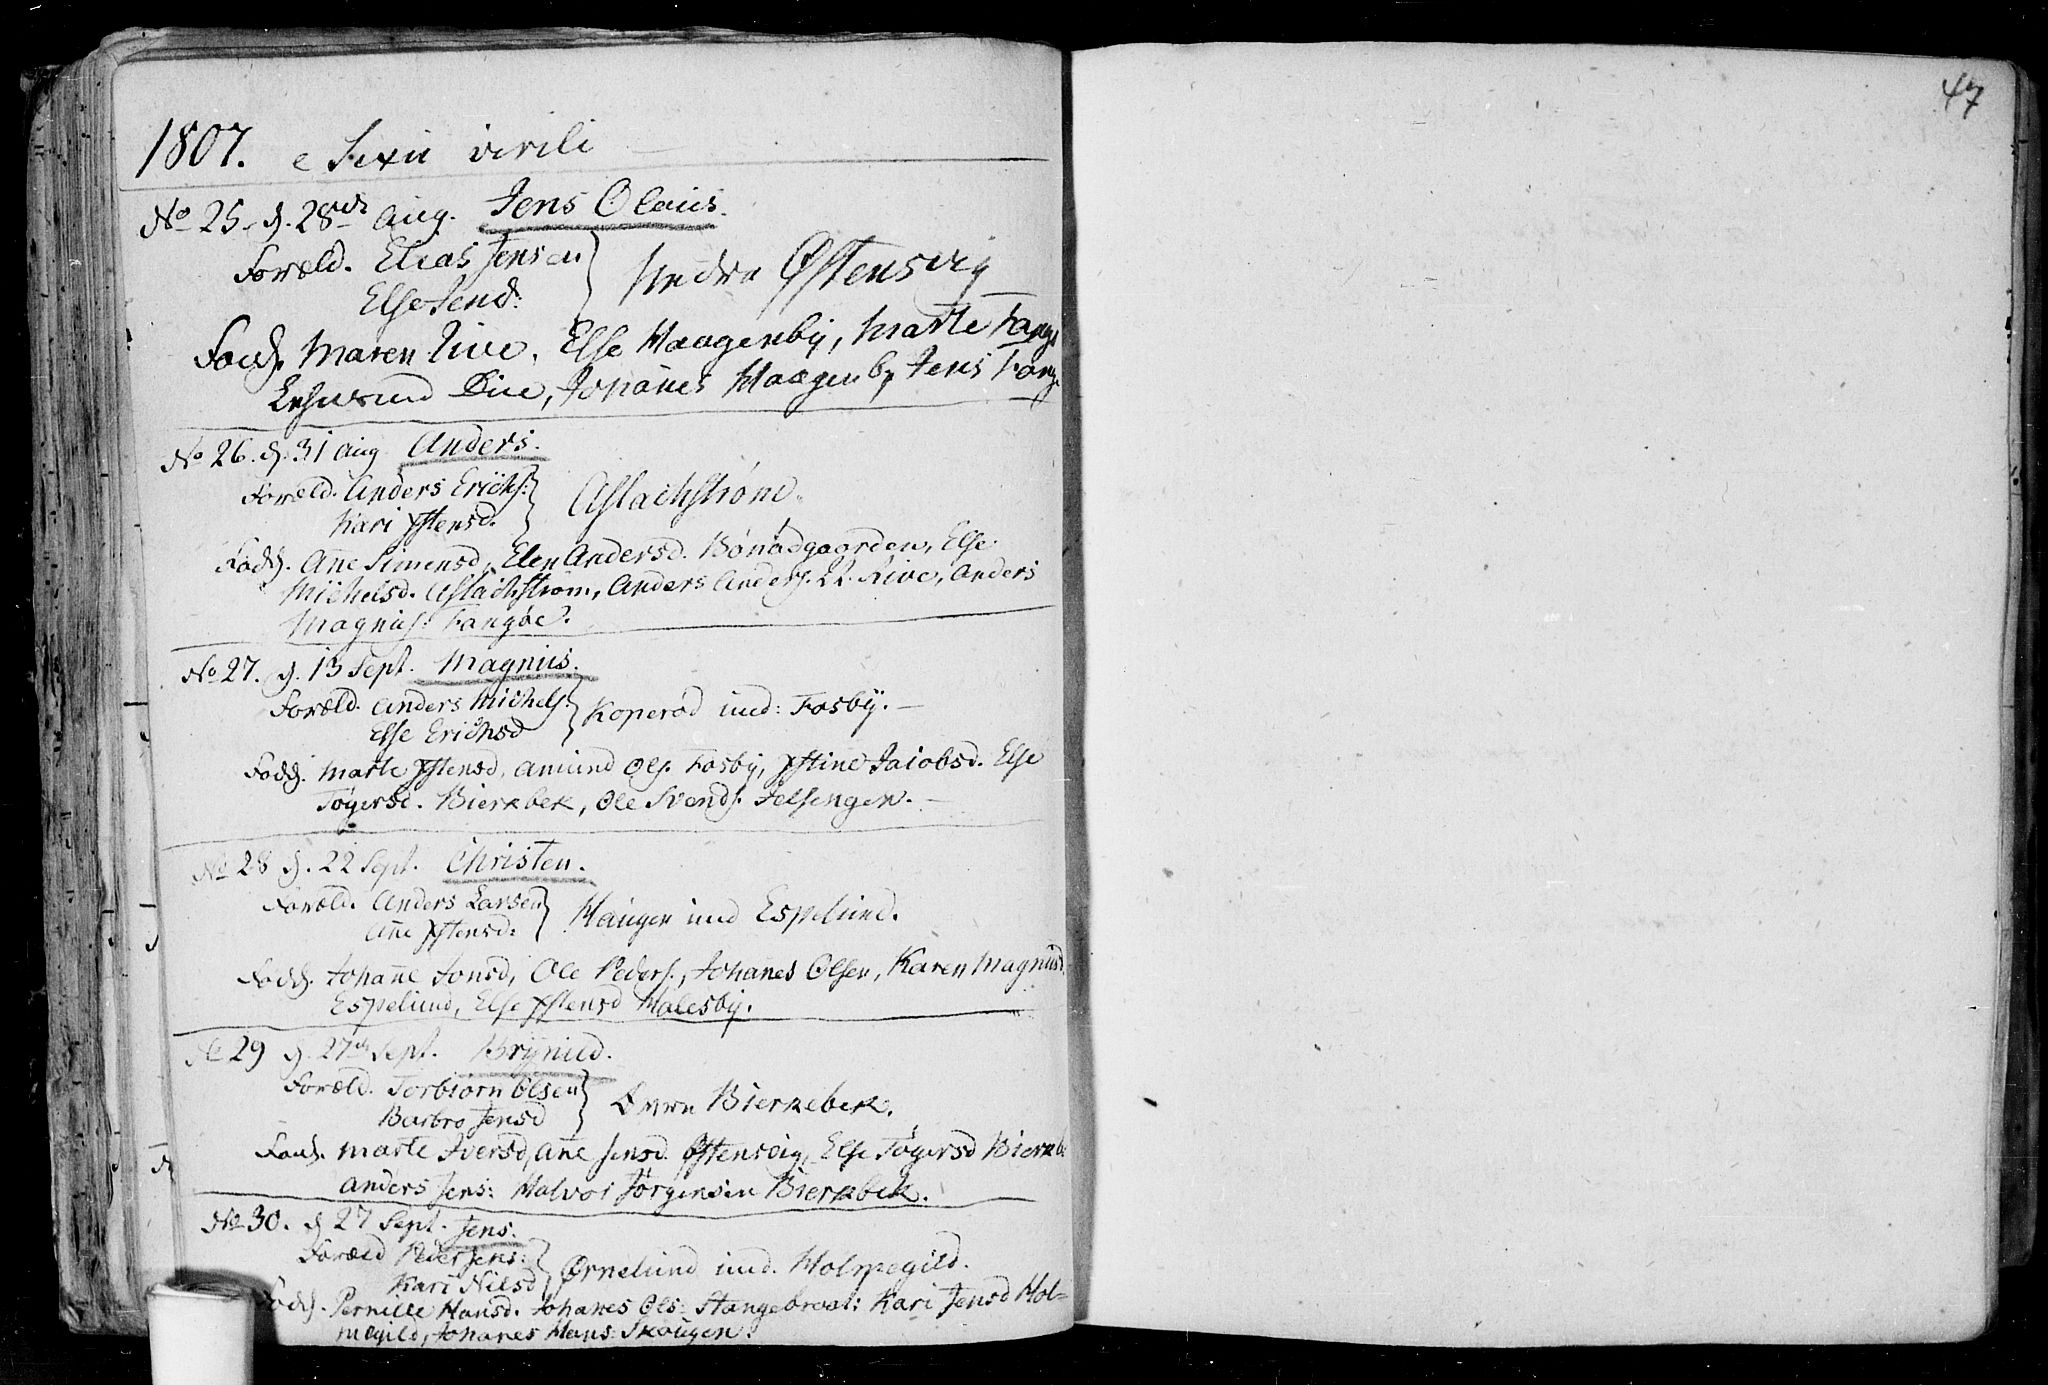 1807. e Sexu virili
No 25. d. 28de Aug. Jens Olaus.
Foræld. Elias Jensen
Else Jensd: Nedre Østensvig
Fadd. Maren Live, Else Haagenby, Marte Fange
Live, Johañes Haagenby Jens Fange
No 26. d. 31 Aug Anders.
Foræld. Anders Erichs:
Kari Østensd. Aslachstrøm.
Fadd. Añe Simensd, Elen Andersd. Bönödgaarden, Else
Michelsd. Aslachstrøm, Anders Anders. Live, Anders
Magnus: Fangøe.
No 27. d. 13 Sept. Magnus.
Foræld. Anders Michels.
Else Erichsd Koperød und: Fosby.
Fadd. Marte Østensd, Amund Ols. Fosby, Jacobsd. Else
Tøgersd. Bierkbek, Ole Svends. Felsengen.
No 28 d. 22 Sept. Christen.
Foræld. Anders Larsen
Añe Østensd: Haugen und Espelund.
Fadd. Johañe Jonsd, Ole Peders., Johañes Olsen, Karen Magnusd.
Espelund, Else Østensd Halesby.
No 29 d. 27de Sept. Brynild.
Foræld. Torbiørn Olsen
Barbro Jensd Øvre Bierkebek.
Fadd. Marte Iversd, Añe Jensd. Østensvig, Else Tøgersd Bierkb:
Anders Jens: Halvor Jørgensen Bierkbek.
No 30. d 27 Sept. Jens.
Foræld Peder Jens:
Kari Nilsd Ørnelund und. Holmegild.
Fadd. Pernille Hansd. Johañes Ols: Stangebraat: Kari Jensd Hol=
megild, Johanes Hans: Skougen.
47